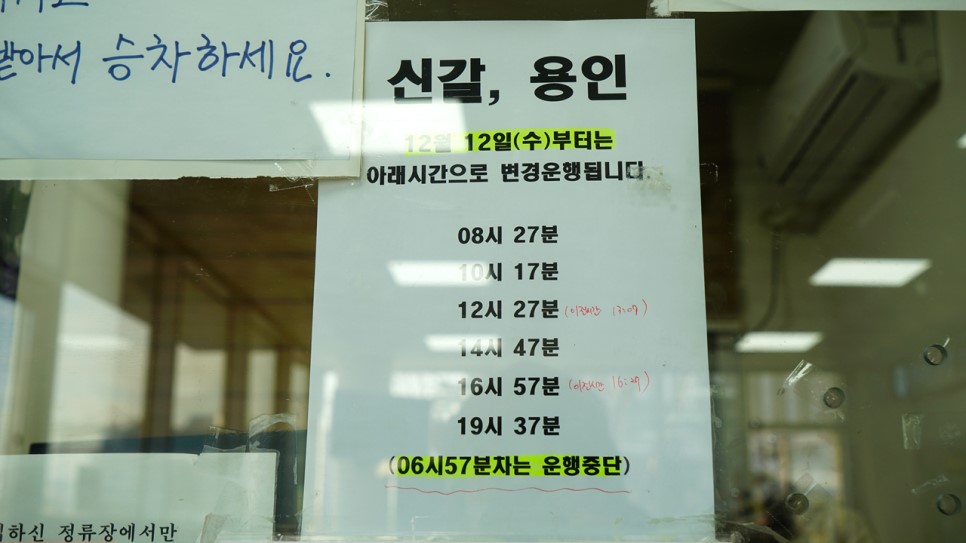 받아서 승차하세요.
신갈, 용인
12월 12일(수)부터는
아래시간으로 변경운행됩니다.
08시 27분
10시 17분
12시 27분 (이전시간 17:07)
14시 47분
16시 57분 (이전시간 16:27)
19시 37분
(06시57분차는 운행중단)
하신 정류장에서만